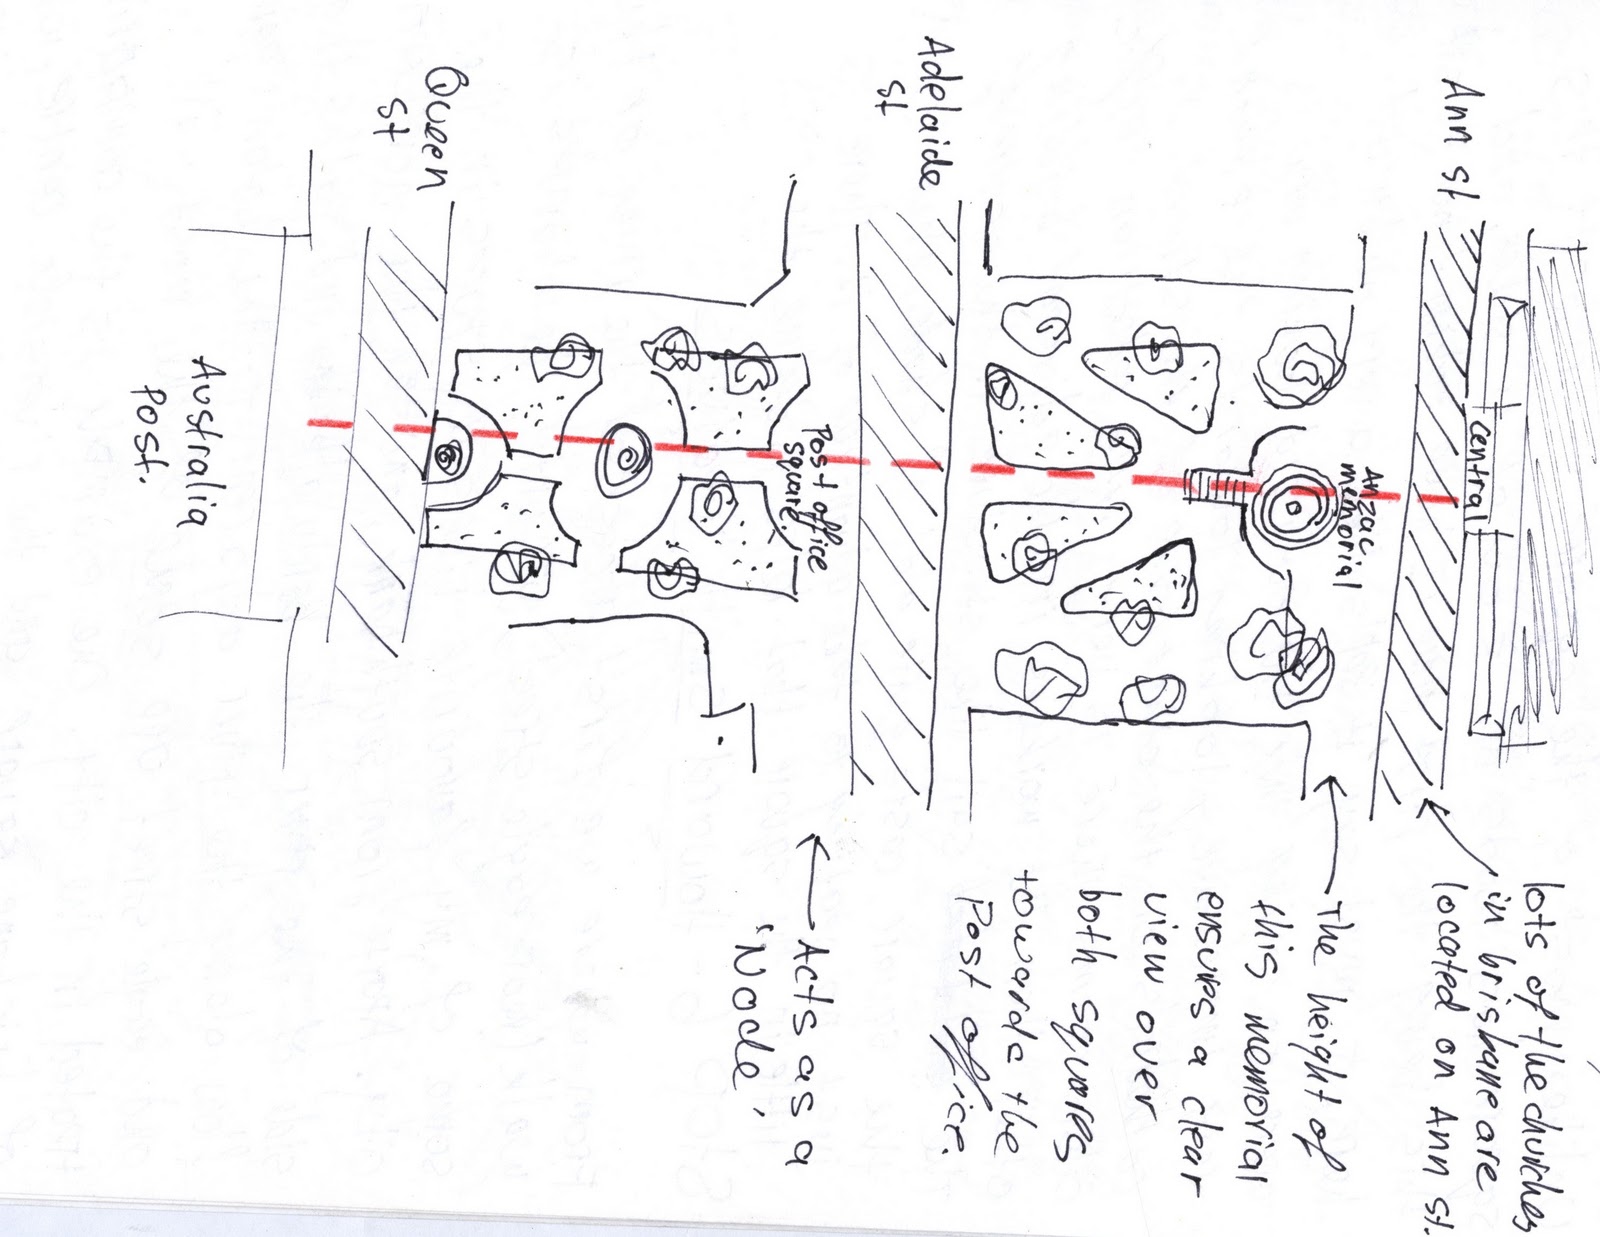 lots of the churches
in brisbane are
located on Ann st.
Ann st
central
Anzac
memorial
The height of
this memorial
ensures a clear
view over
both squares
towards the
Post office.
Adelaide
st
Post office
square
Acts as a
'Node'
Queen
st
Australia
Post.